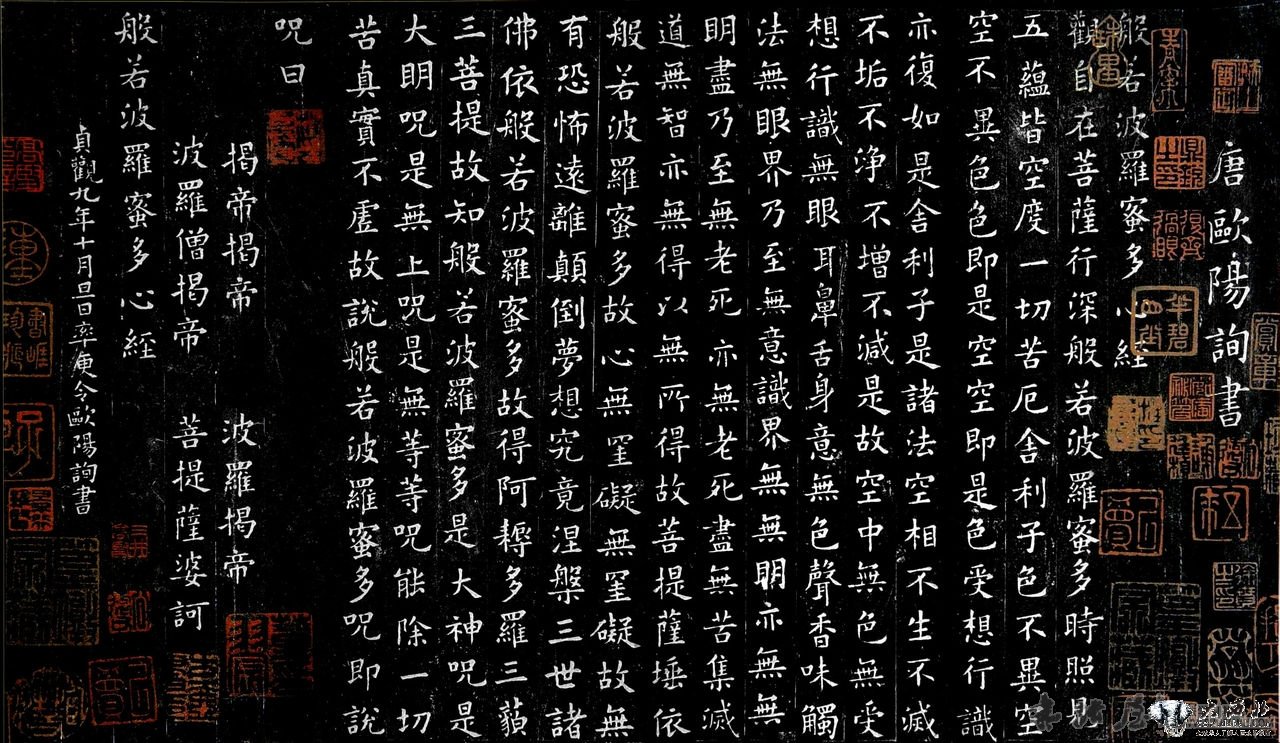 唐歐陽詢書
般若波羅蜜多心経
觀自在菩薩行深般若波羅蜜多時照見
五蘊皆空度一切苦厄舍利子色不異空
空不異色色即是空空即是色受想行識
亦復如是舍利子是諸法空相不生不滅
不垢不浄不增不減是故空中無色無受
想行識無眼耳鼻舌身意無色聲香味觸
法無眼界乃至無意識界無無明亦無無
明盡乃至無老死亦無老死盡無苦集滅
道無智亦無得以無所得故菩提薩埵依
般若波羅蜜多故心無罣礙無罣礙故無
有恐怖遠離顛倒夢想究竟涅槃三世諸
佛依般若波羅蜜多故得阿耨多羅三藐
三菩提故知般若波羅蜜多是大神呪是
大明呪是無上呪是無等等呪能除一切
苦真實不虛故說般若波羅蜜多呪即說
呪曰
揭帝揭帝 波羅揭帝
波羅僧揭帝 菩提薩婆訶
般若波羅蜜多心経
貞觀九年十月旦日率更令歐陽詢書